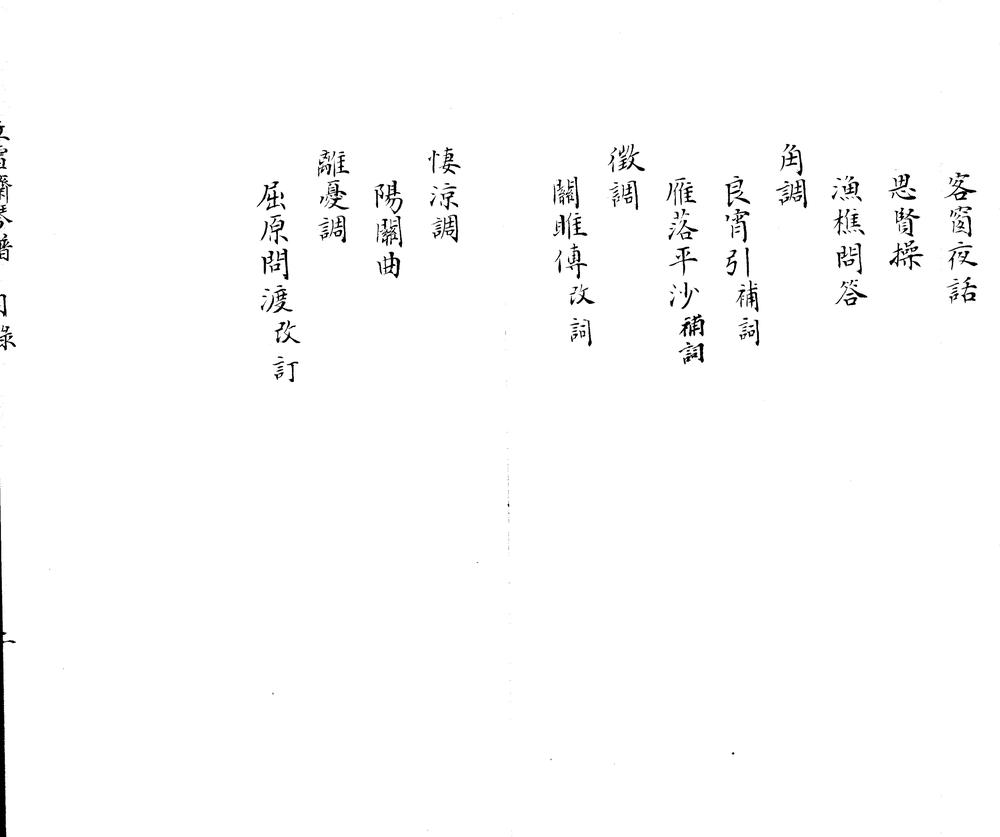 客窗夜話
思賢操
漁樵問答
角調
良宵引 補詞
雁落平沙 補詞
徵調
關雎傳 改詞
悽涼調
陽關曲
離憂調
屈原問渡 改訂
立雪齋琴譜 目錄 二